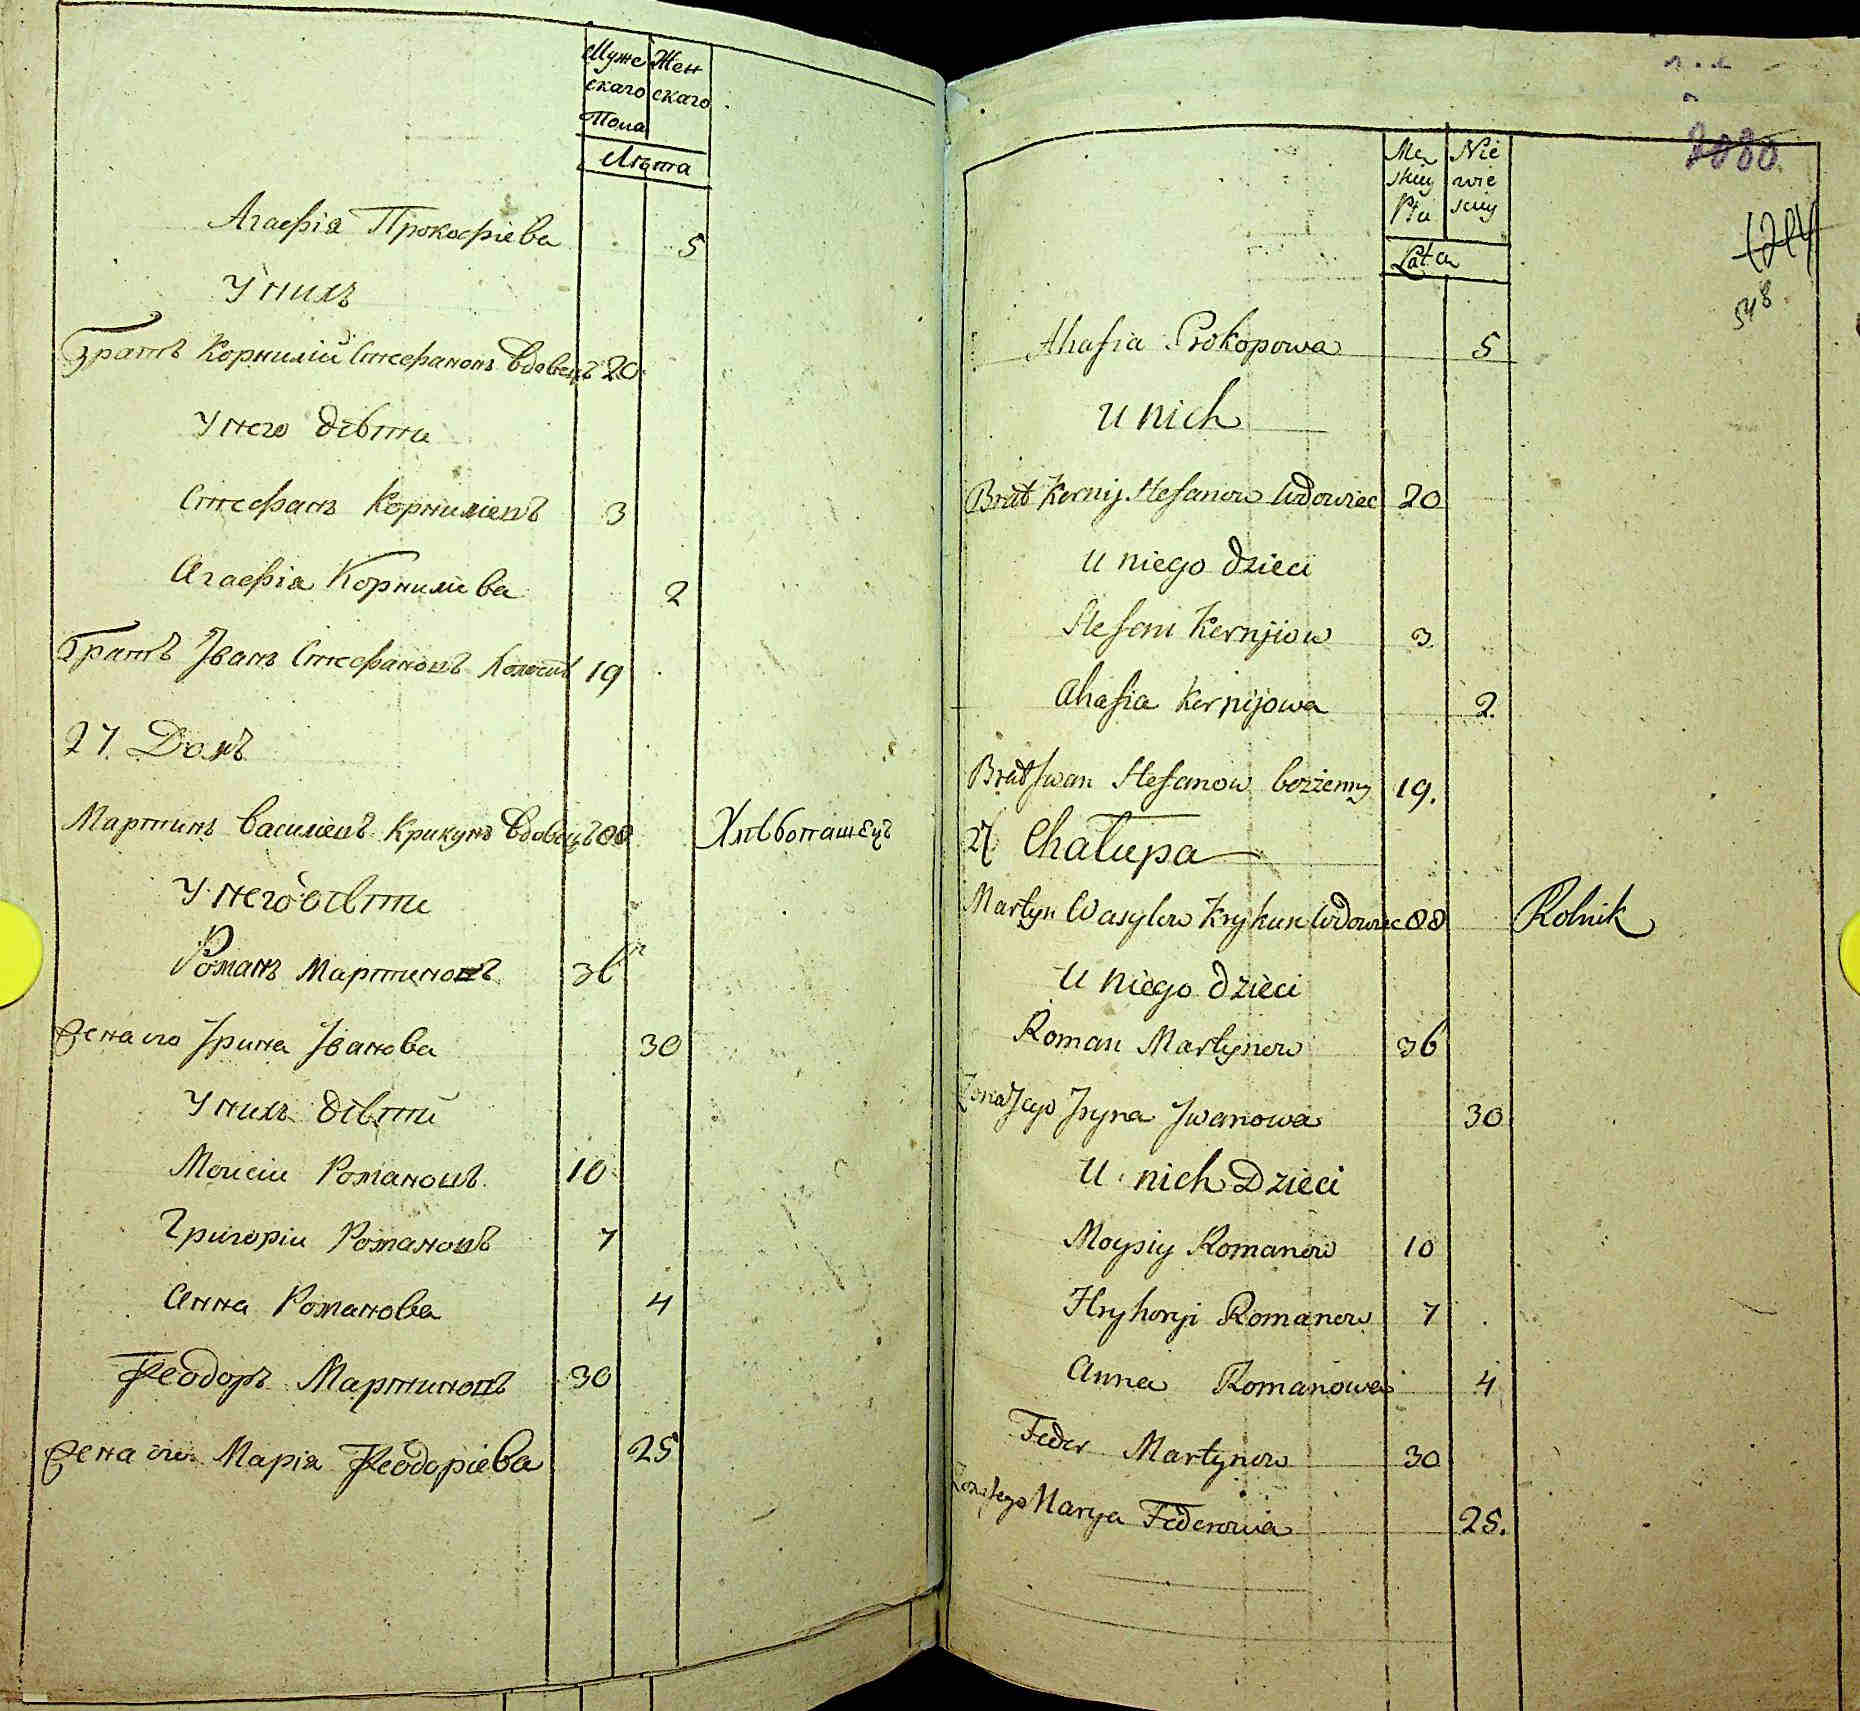 Муже Жен
скаго скаго
Пола
Лѣта
Агафія Прокофіева 5
У нихъ
Братъ Корнилій Стефановъ вдовецъ 20
У него дѣти
Стефанъ Корниліевъ 3
Агафія Корнилива 2
Братъ Іванъ Стефановъ Холостъ 19
27 Домъ
Мартинъ Василіевъ Крикунъ вдовецъ 88 Хлѣбопашецъ
У него дѣти
Романъ Мартиновъ 36
Жена его Ірина Іванова 30
У нихъ дѣти
Моисіи Романовъ 10
Григоріи Романовъ 7
Анна Романова 4
Феодоръ Мартиновъ 30
Жена его Марія Феодоріева 25
8080
548
Mę Nie
skiey wie
Płci sciey
Lata
Ahafia Prokopowa 5
U nich
Brat Kernij Stefanow Wdowiec 20
U niego dzieci
Stefan Kernijow 3
Ahafia Kernijowa 2
Brat Iwan Stefanow bezżenny 19.
27 Chałupa
Martyn Wasylew Krykun Wdowiec 88 Rolnik
U niego dzieci
Roman Martynow 36
Żona Jego Iryna Iwanowa 30
U nich Dzieci
Moysiy Romanow 10
Hryhoryi Romanow 7
Anna Romanowa 4
Feder Martynow 30
Żona Jego Marya Federowa 25.